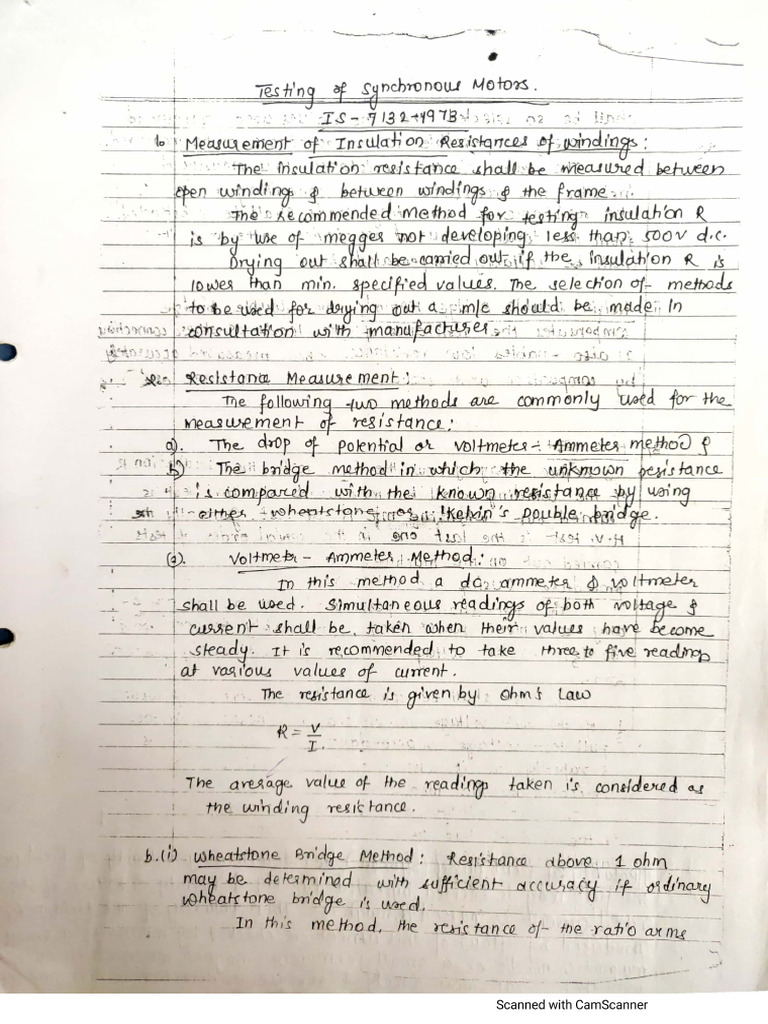 Testing of Synchronous Motors.
IS - 7132 - 1973
1. Measurement of Insulation Resistances of windings:
The insulation resistance shall be measured between
open windings & between windings & the frame.
The recommended method for testing insulation R
is by use of megger not developing less than 500V d.c.
Drying out shall be carried out if the insulation R is
lower than min. specified values. The selection of methods
to be used for drying out a m/c should be made in
consultation with manufacturer
Resistance Measurement:
The following two methods are commonly used for the
measurement of resistance:
a). The drop of potential or voltmeter - Ammeter method &
b) The bridge method in which the unknown resistance
is compared with the known resistance by using
either wheatstone or kelvin's Double bridge.
(a). Voltmeter - Ammeter Method:
In this method a dc ammeter & voltmeter
shall be used. Simultaneous readings of both voltage &
current shall be taken when their values have become
steady. It is recommended to take three to five readings
at various values of current.
The resistance is given by ohm's Law
R = V
I.
The average value of the readings taken is considered as
the winding resistance.
b.(i) Wheatstone Bridge Method: Resistance above 1 ohm
may be determined with sufficient accuracy if ordinary
wheatstone bridge is used.
In this method, the resistance of the ratio arms
Scanned with CamScanner